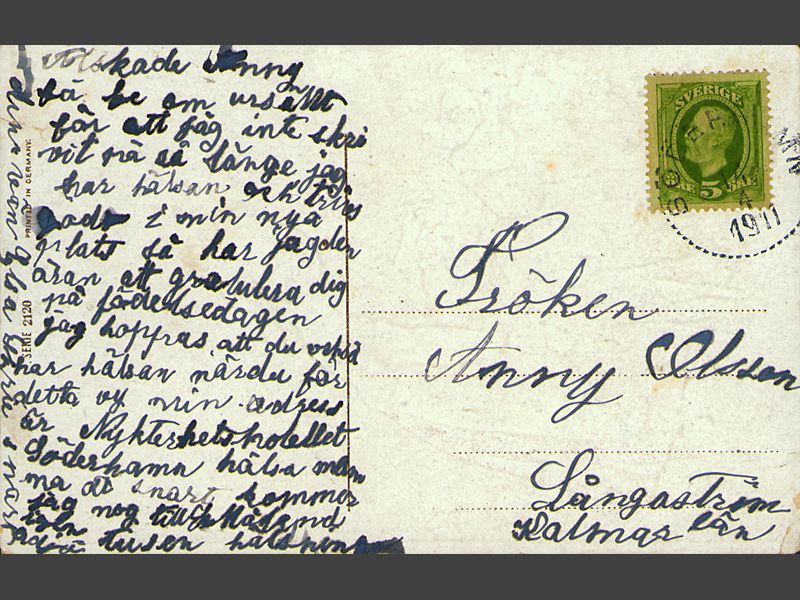 Älskade Anny
få be om ursäkt
för att jag inte skri
vit på så länge jag
har hälsan och trivs
godt i min nya
plats så har jag den
äran att gratulera dig
på födelsedagen
jag hoppras att du också
har hälsan när du får
detta vy min adress
är Nykterhetshotellet
Söderhamn hälsa mam
ma at snart kommer
jag nog till
igen
tusen hälsnin
din vän Elsa snart
PRINTED IN GERMANY
SERIE 2120
SVERIGE
5
1911
Fröken
Anny Olsson
Långaström
Kalmar län